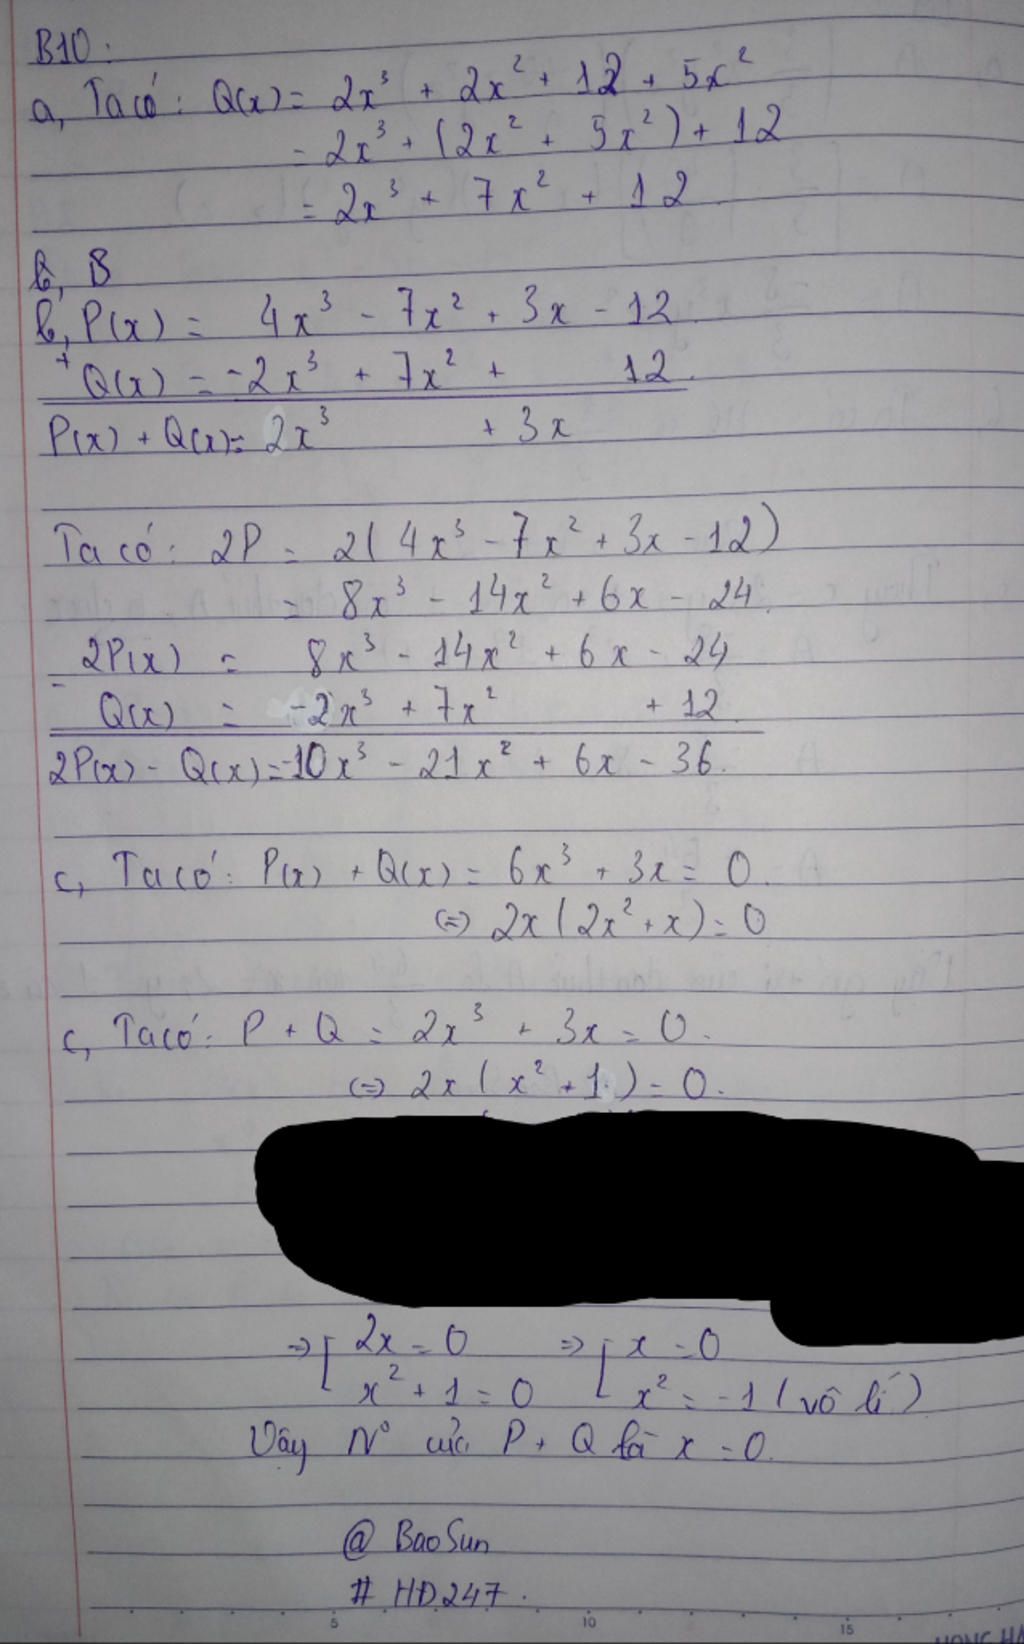 B10:
a, Ta có: Q(x) = 2x³ + 2x² + 12 + 5x²
= 2x³ + (2x² + 5x²) + 12
= 2x³ + 7x² + 12
b, B
b, P(x) = 4x³ - 7x² + 3x - 12
+ Q(x) = -2x³ + 7x² + 12
P(x) + Q(x) = 2x³ + 3x
Ta có: 2P = 2(4x³ - 7x² + 3x - 12)
= 8x³ - 14x² + 6x - 24.
2P(x) = 8x³ - 14x² + 6x - 24
- Q(x) = -2x³ + 7x² + 12
2P(x) - Q(x) = -10x³ - 21x² + 6x - 36.
c, Ta có: P(x) + Q(x) = 6x³ + 3x = 0.
(=) 2x(2x² + x) = 0
c, Ta có: P + Q = 2x³ + 3x = 0.
(=) 2x(x² + 1) = 0.
=> [ 2x = 0 => [ x = 0
x² + 1 = 0 x² = -1 (vô lí)
Vậy N° của P + Q là x = 0.
@ BaoSun
# HD247.
5 10 15
HONG HA